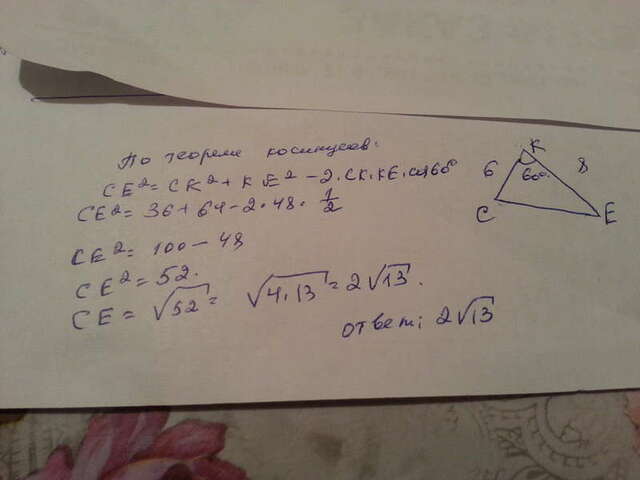 По теореме косинусов:
CE² = CK² + KE² - 2·CK·KE·cos60°
CE² = 36 + 64 - 2·48·1/2
CE² = 100 - 48
CE² = 52.
CE = √52 = √4·13 = 2√13.
ответ: 2√13
K
6
8
60°
C
E